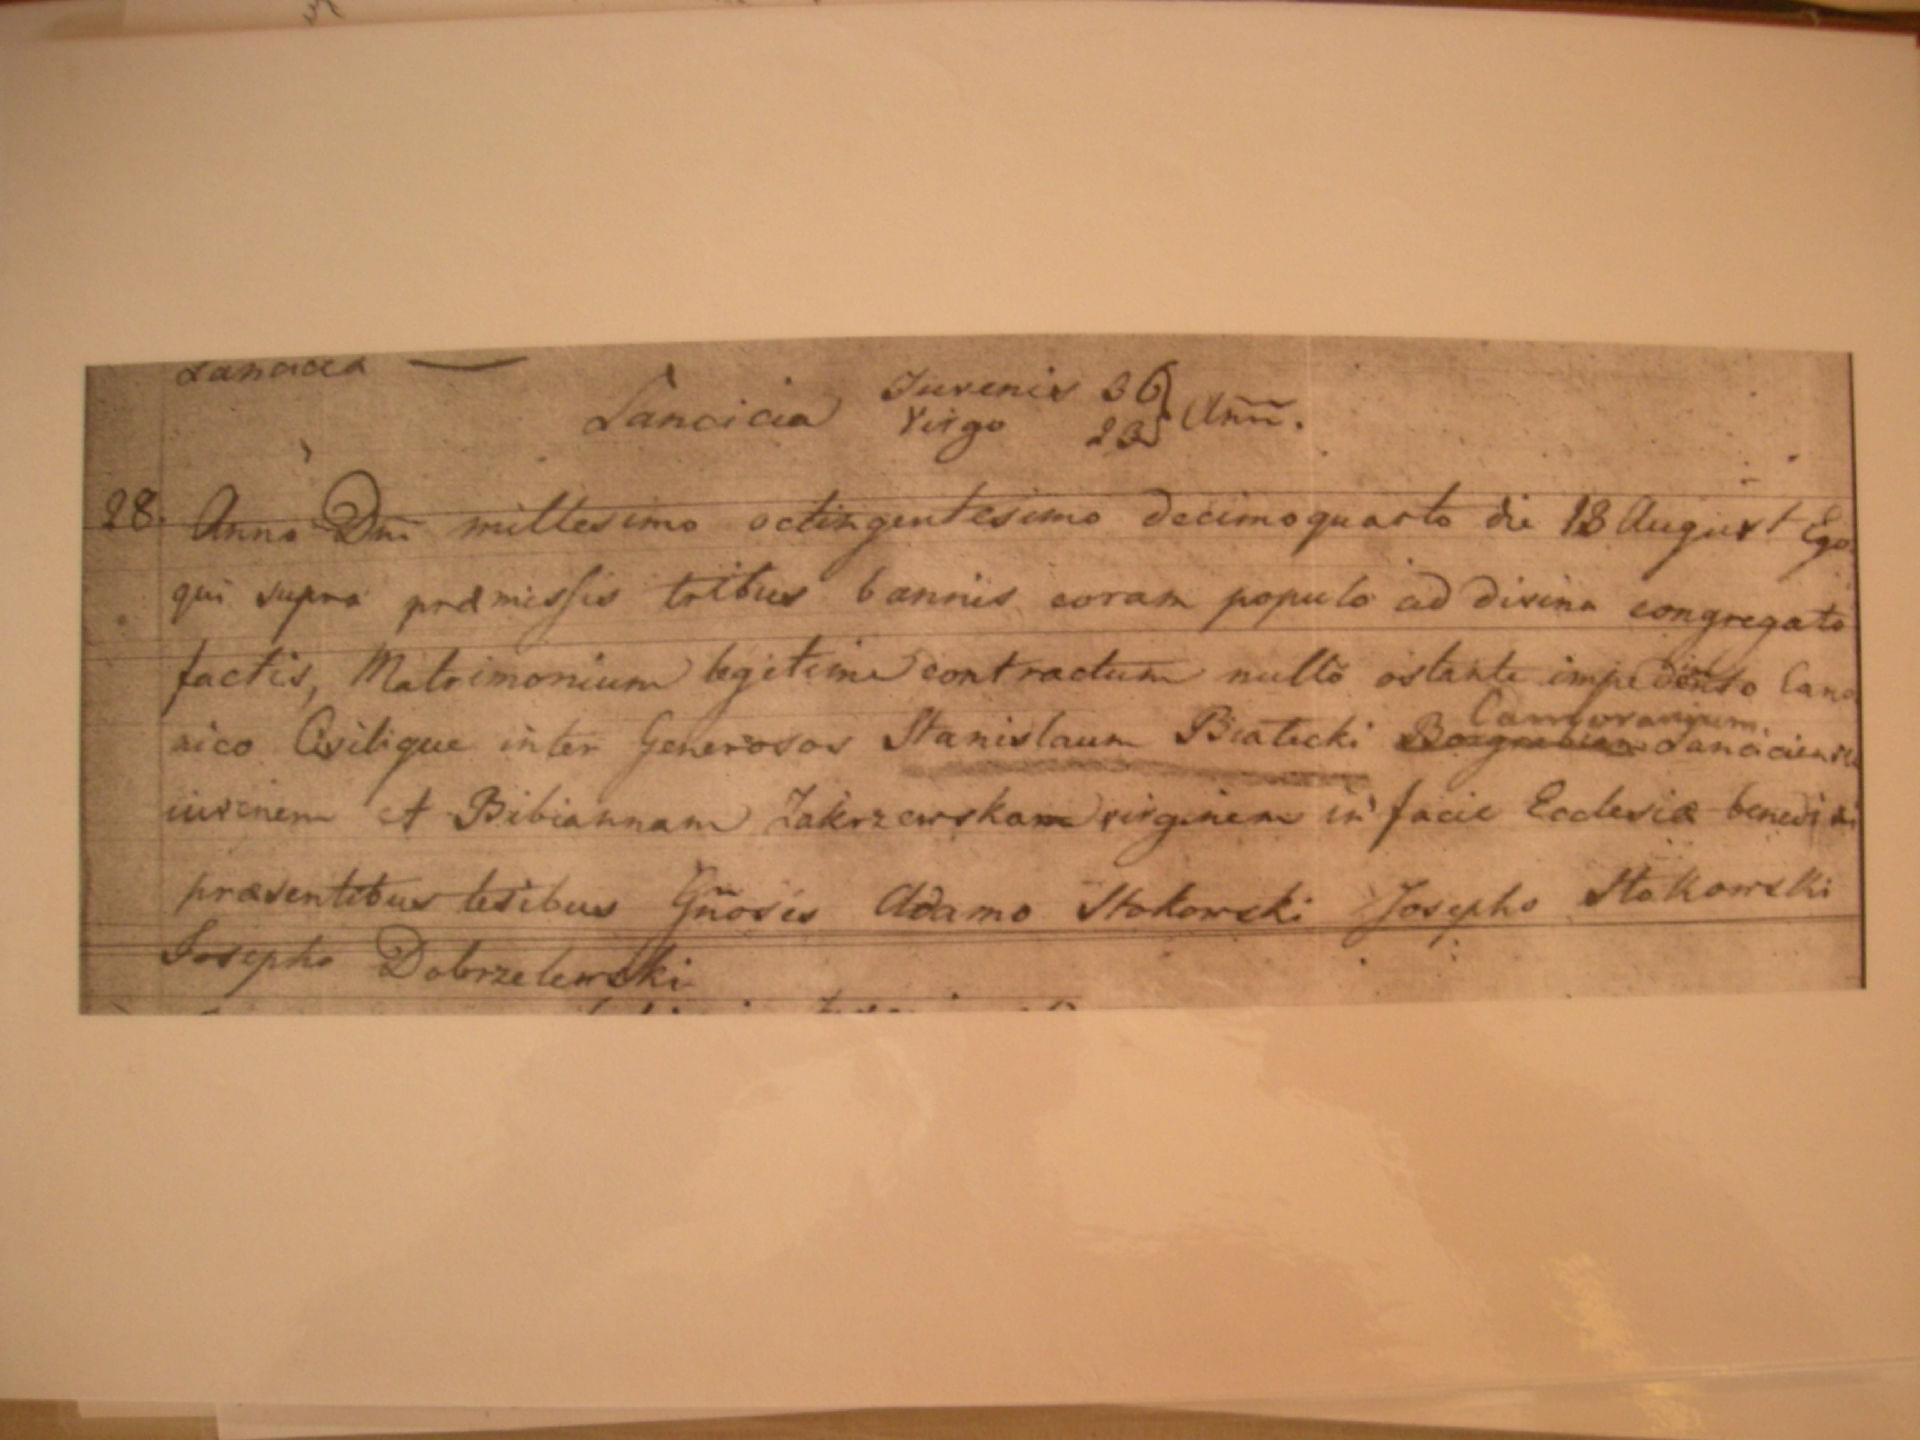 Lancicia
Lancicia Juvenis 36
Virgo 23 Añn̄.
28. Anno Dnī millesimo octingentesimo decimoquarto die 18 August Ego
qui supra præmissis tribus bannis coram populo ad divina congregato
factis, Matrimonium legitime contractum nullo ostante impedimento Cano
nico Civilique inter Generosos Stanislaum Białecki Lanciciens
iuvenem et Bibiannam Zakrzewskam virginem in facie Ecclesiæ benedixi
præsentibus testibus Gñosis Adamo Stokowski Josepho Stokowski
Josepho Dobrzelewski